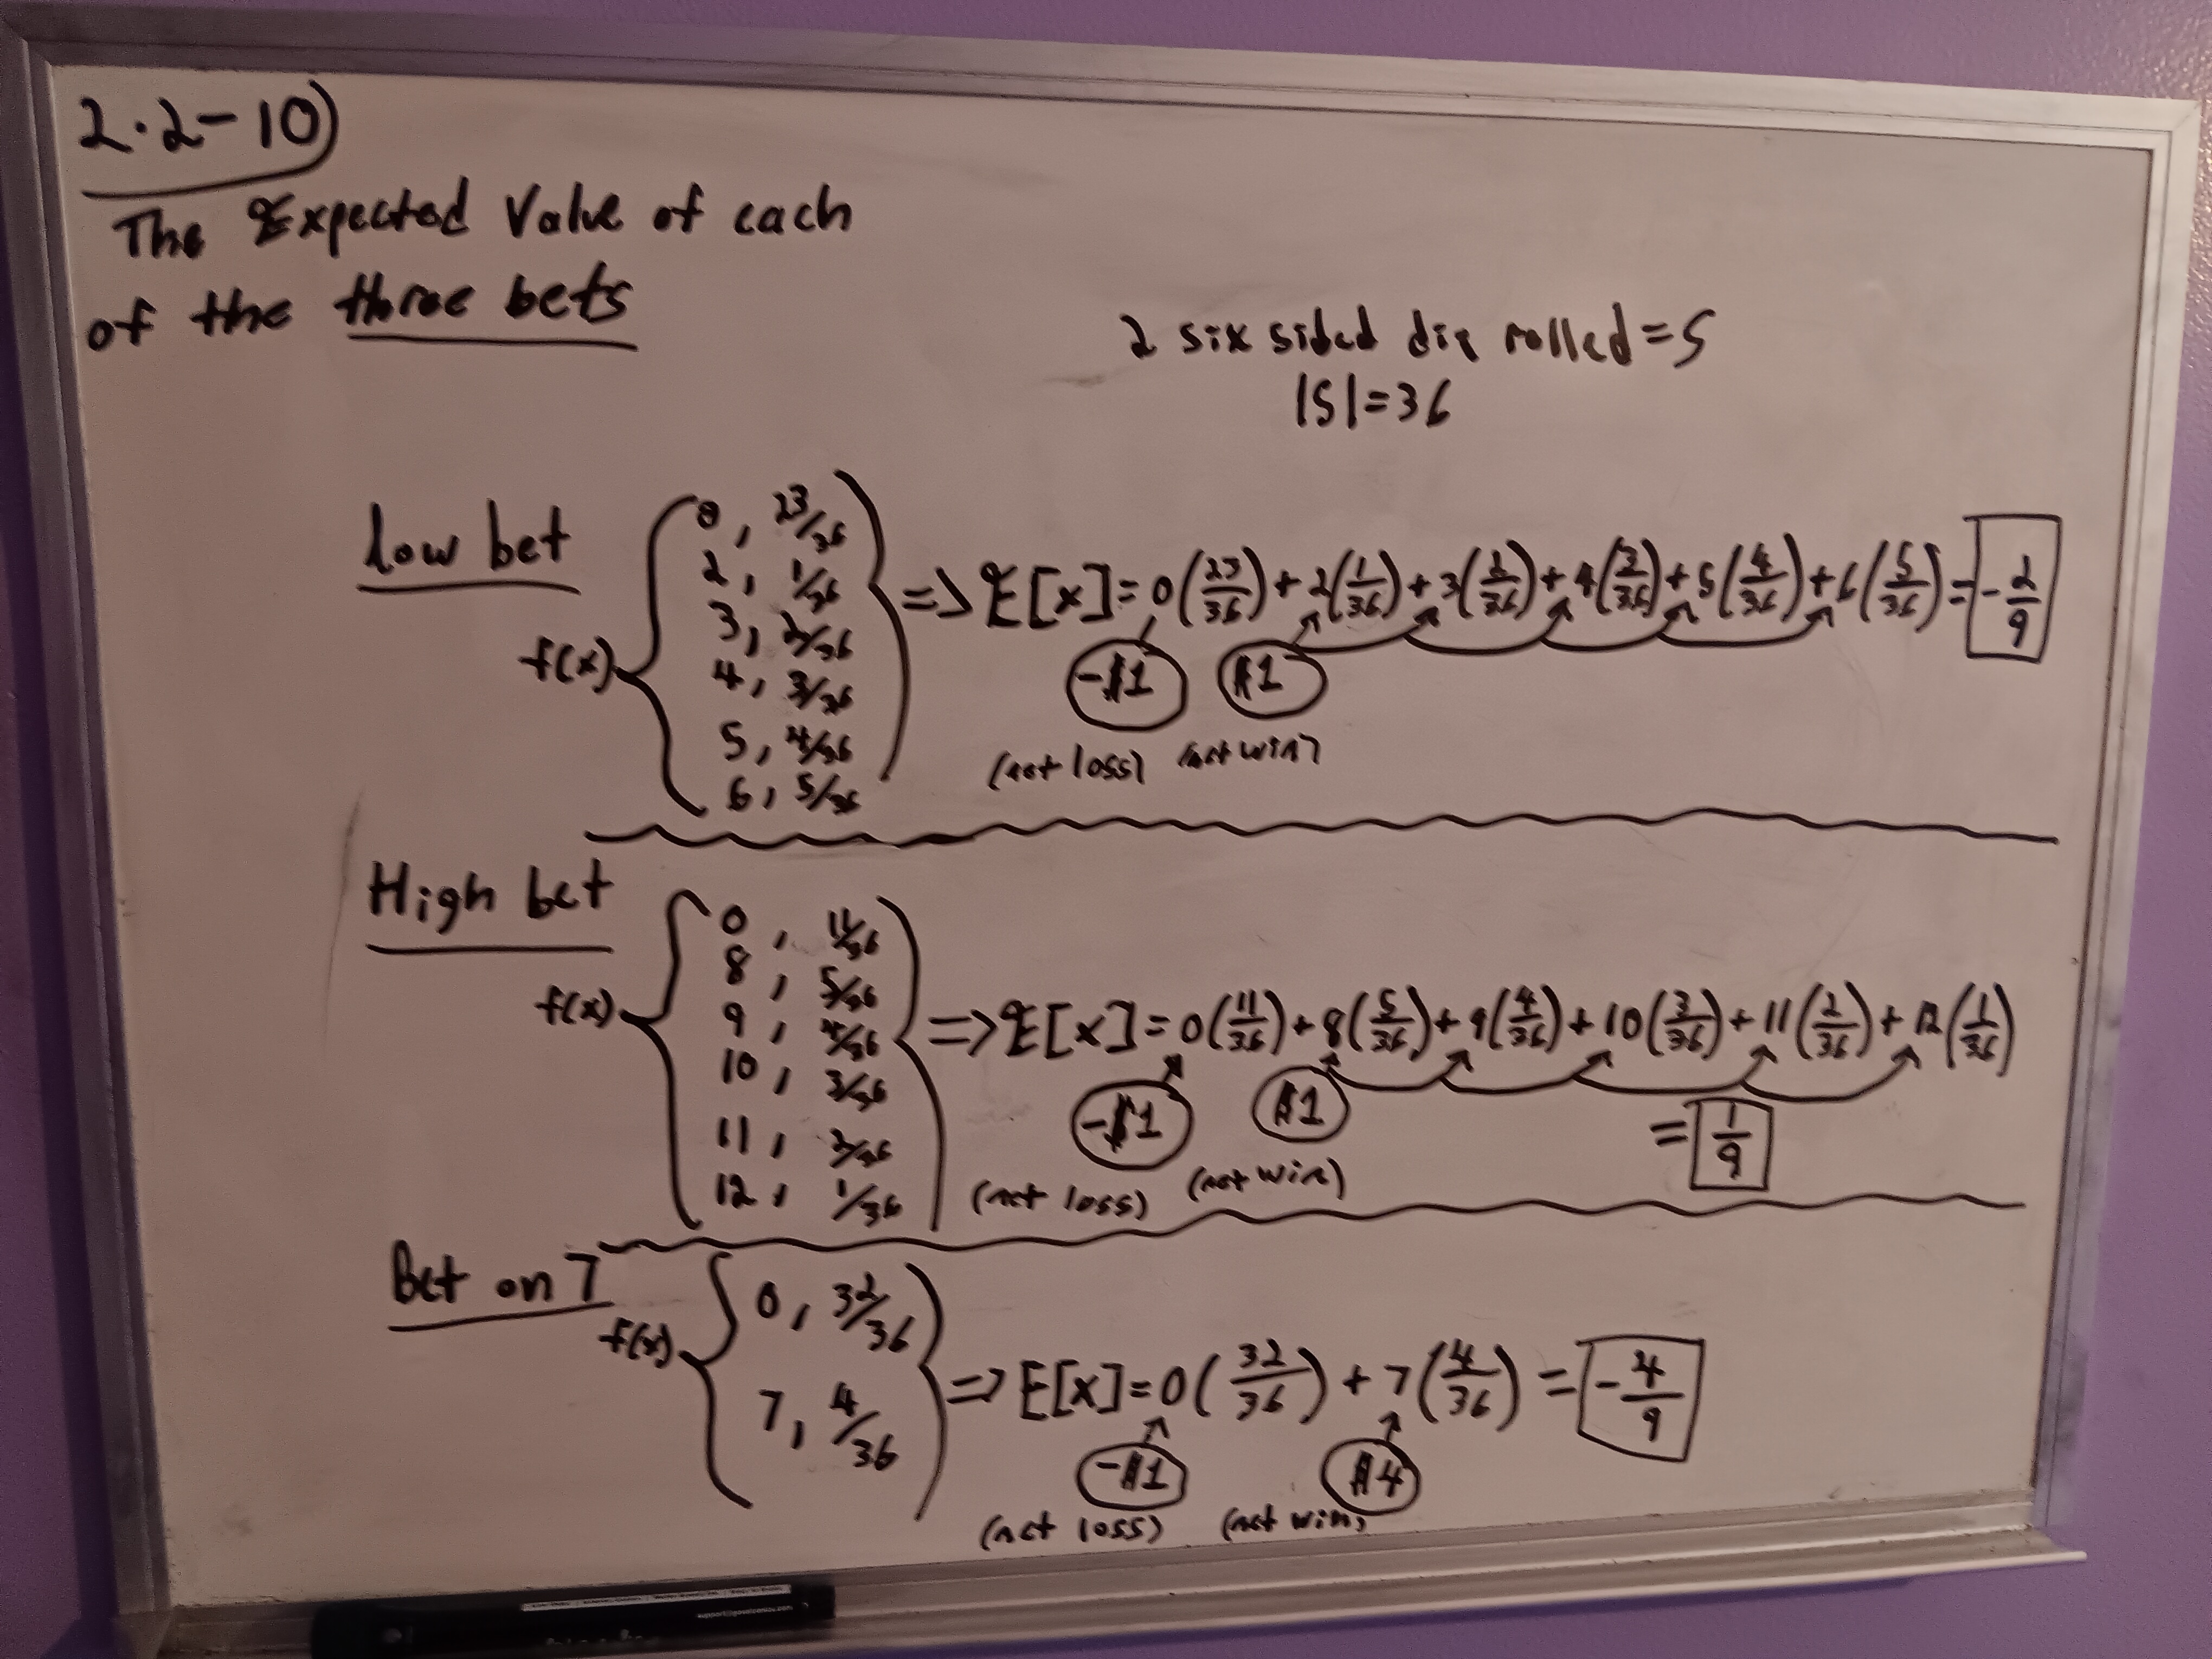 2.2-10)
The Expected Value of each
of the three bets
2 six sided die rolled = S
|S|=36
low bet
f(x) { 0, 23/36
2, 1/36
3, 2/36
4, 3/36
5, 4/36
6, 5/36 } => E[x]= 0(23/36) + 2(1/36) + 3(2/36) + 4(3/36) + 5(4/36) + 6(5/36) = -2/9
-$1 $1
(net loss) (net win)
High bet
f(x) { 0, 11/36
8, 5/36
9, 4/36
10, 3/36
11, 2/36
12, 1/36 } => E[x] = 0(11/36) + 8(5/36) + 9(4/36) + 10(3/36) + 11(2/36) + 12(1/36)
-$1 $1
= 1/9
(net loss) (net win)
Bet on 7
f(x) { 0, 32/36
7, 4/36 } => E[x]=0(32/36) + 7(4/36) = -4/9
-$1 $4
(net loss) (net win)